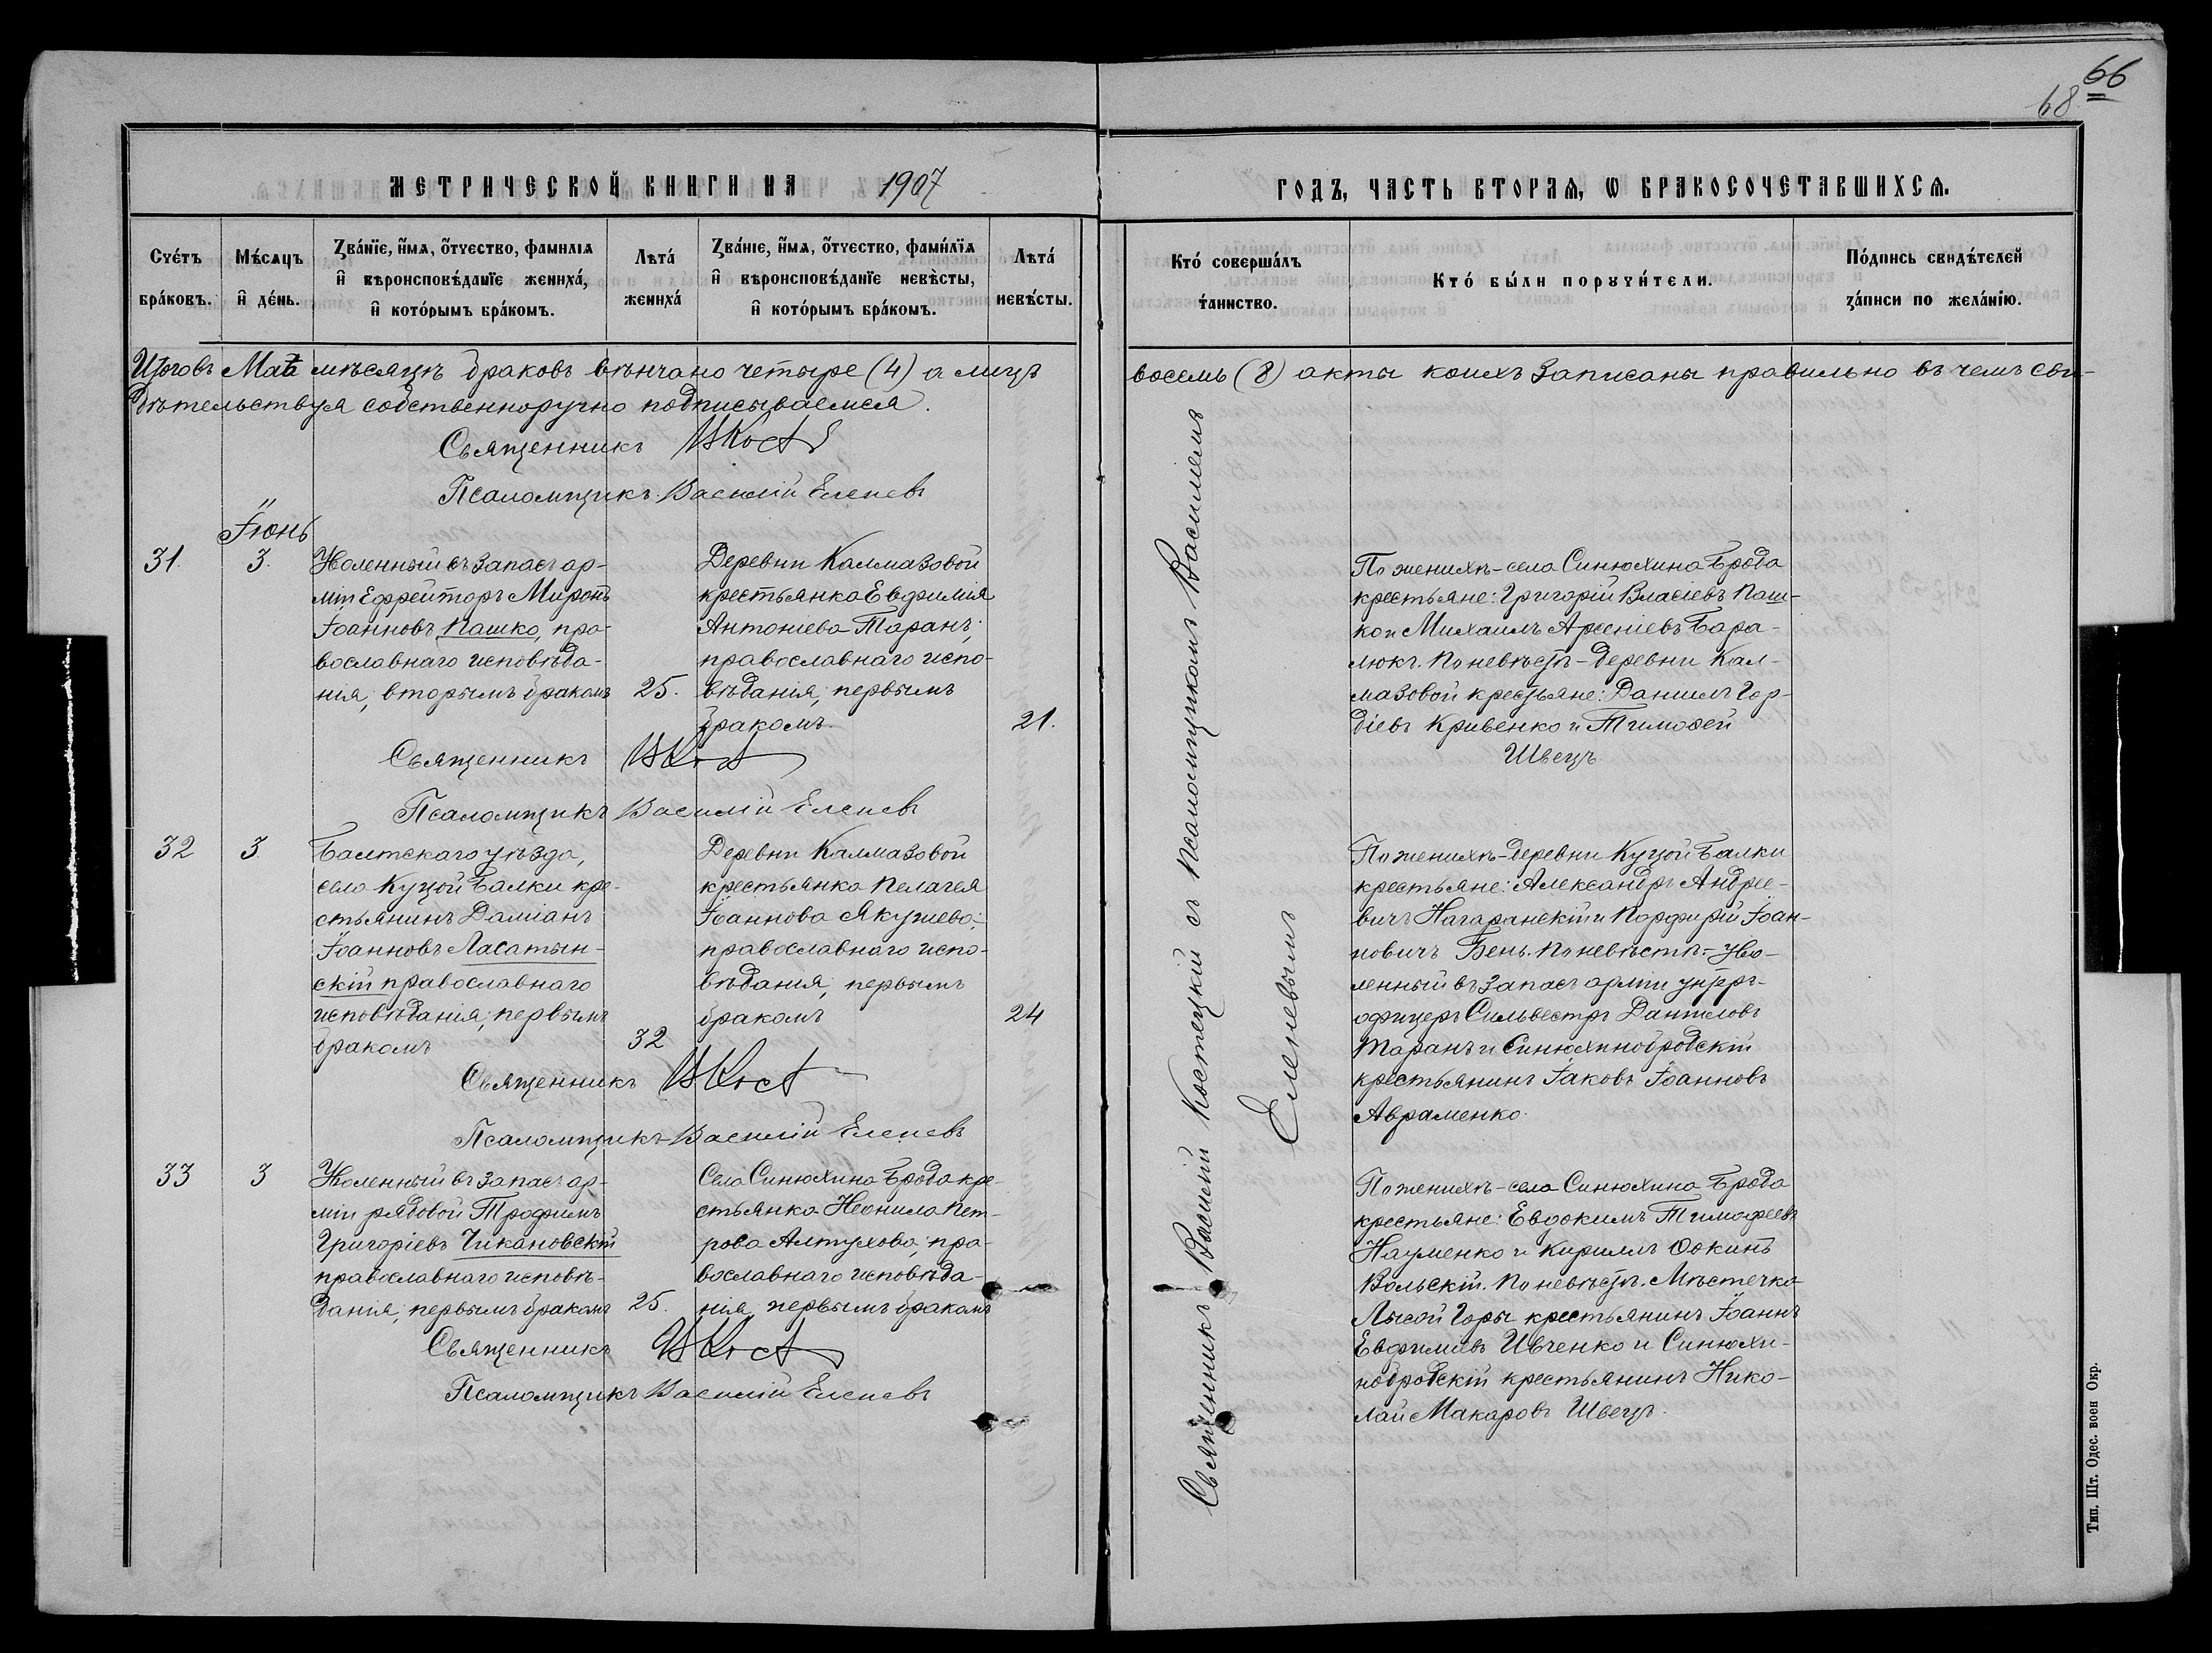 66
68
МЕТРИЧЕСКОЙ КНИГИ НА 1907
ГОДЪ, ЧАСТЬ ВТОРАѦ, Ѡ БРАКОСОЧЕТАВШИХСѦ.
Сче́тъ бра́ковъ.
Мѣ́сяцъ и҆ де́нь.
Зва́нїе, и҆́мѧ, ѻ҆́тчество, фамилїѧ
и҆ вѣроисповѣ́данїе жениха́,
и҆ кото́рымъ бра́комъ.
Лѣта́ жениха́
Зва́нїе, и҆́мѧ, ѻ҆́тчество, фами́лїѧ
и҆ вѣроисповѣ́данїе невѣ́сты,
и҆ кото́рымъ бра́комъ.
Лѣта́ невѣ́сты.
Кто́ соверша́лъ та́инство.
Кто́ бы́ли порꙋчи́тели.
По́дпись свидѣ́телей за́писи по жела́нїю.
Итогъ Маѣ мѣсяцѣ браковъ вѣнчано четыре (4) а лицъ восемь (8) акты коихъ записаны правильно въ чемъ сви-
дѣтельствуя собственноручно подписываемся.
Священникъ
Псаломщикъ Василій Еленевъ
Іюнь
31.
3.
Уволенный въ запасъ ар-
міи Ефрейторъ Миронъ
Іоанновъ Пашко, пра-
вославнаго исповѣда-
нія, вторымъ бракомъ
25.
Деревни Калмазовой
крестьянка Евфимія
Антоніева Таранъ;
православнаго испо-
вѣданія, первымъ
бракомъ.
21.
По женихѣ - села Синюхина Брода
крестьяне: Григорій Власіевъ Паш-
ко и Михаилъ Арсеніевъ Бара-
люкъ. По невѣстѣ - деревни Кал-
мазовой крестьяне: Даниилъ Гор-
діевъ Кривенко и Тимофей
Швецъ.
Священникъ
Псаломщикъ Василій Еленевъ
32
3.
Балтскаго уѣзда,
села Куцой Балки кре-
стьянинъ Даміанъ
Іоанновъ Ласатын-
скій православнаго
исповѣданія, первымъ
бракомъ
32
Деревни Калмазовой
крестьянка Пелагея
Іоаннова Якушева;
православнаго испо-
вѣданія, первымъ
бракомъ
24
По женихѣ - деревни Куцой Балки
крестьяне: Александръ Андрее-
вичъ Нагаранскій и Порфирій Іоан-
новичъ Бень. По невѣстѣ: уво-
ленный въ запасъ арміи унтеръ-
офицеръ Сильвестръ Даниловъ
Таранъ и Синюхинобродскій
крестьянинъ Іаковъ Іоанновъ
Авраменко.
Священникъ
Псаломщикъ Василій Еленевъ
33
3
Уволенный въ запасъ ар-
міи рядовой Трофимъ
Григоріевъ Чикановскій
православнаго исповѣ-
данія, первымъ бракомъ
25.
Села Синюхина Брода кре-
стьянка Неонила Пет-
рова Алтухова, пра-
вославнаго исповѣда-
нія, первымъ бракомъ
По женихѣ - села Синюхина Брода
крестьяне: Евдокимъ Тимофеевъ
Науменко и Кириллъ Ѳокинъ
Вольскій. По невѣстѣ. Мѣстечка
Лысой Горы крестьянинъ Іоаннъ
Евфиміевъ Ивченко и Синюхи-
нобродскій крестьянинъ Нико-
лай Макаровъ Швецъ.
Священникъ
Псаломщикъ Василій Еленевъ
Священникъ Василій Костецкій съ псаломщикомъ Василіемъ
Еленевымъ
Тип. Шт. Одес. воен Окр.